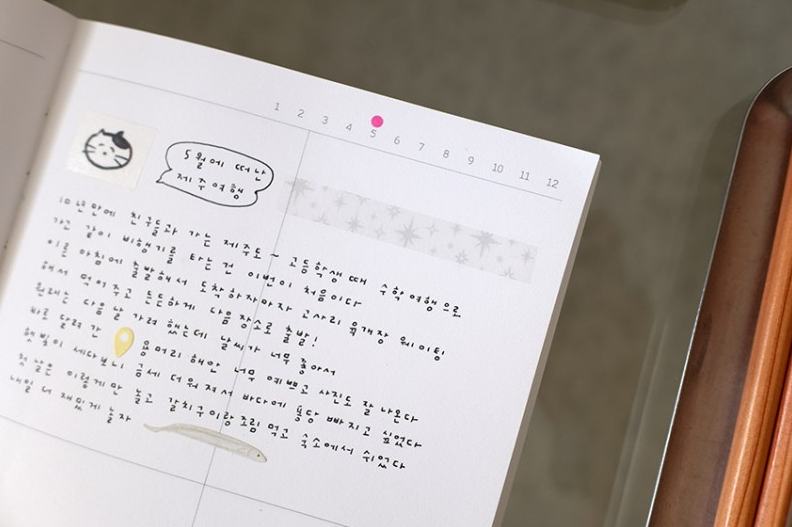 1 2 3 4 5 6 7 8 9 10 11 12
5월에 떠난
제주여행
10년만에 친구들과 가는 제주도~ 고등학생때 수학여행으로
가고 같이 비행기를 타는건 이번이 처음이다
이른 아침에 출발해서 도착하자마자 고사리 육개장 웨이팅
해서 먹어주고 든든하게 다음 장소로 출발!
원래는 다음날 가려 했는데 날씨가 너무 좋아서
바로 달려간 용머리 해안 너무 예쁘고 사진도 잘 나온다
햇빛이 세다보니 금세 더워져서 바다에 퐁당 빠지고 싶었다
첫 날은 이렇게만 놀고 갈치구이랑 조림 먹고 숙소에서 쉬었다
내일 더 재밌게 놀자